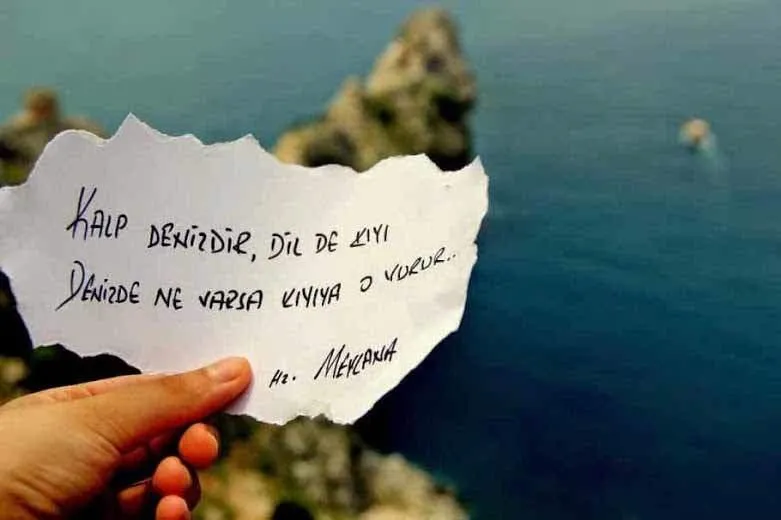 KALP DENİZDİR, DİL DE KIYI
DENİZDE NE VARSA KIYIYA O VURUR..
Hz. MEVLANA